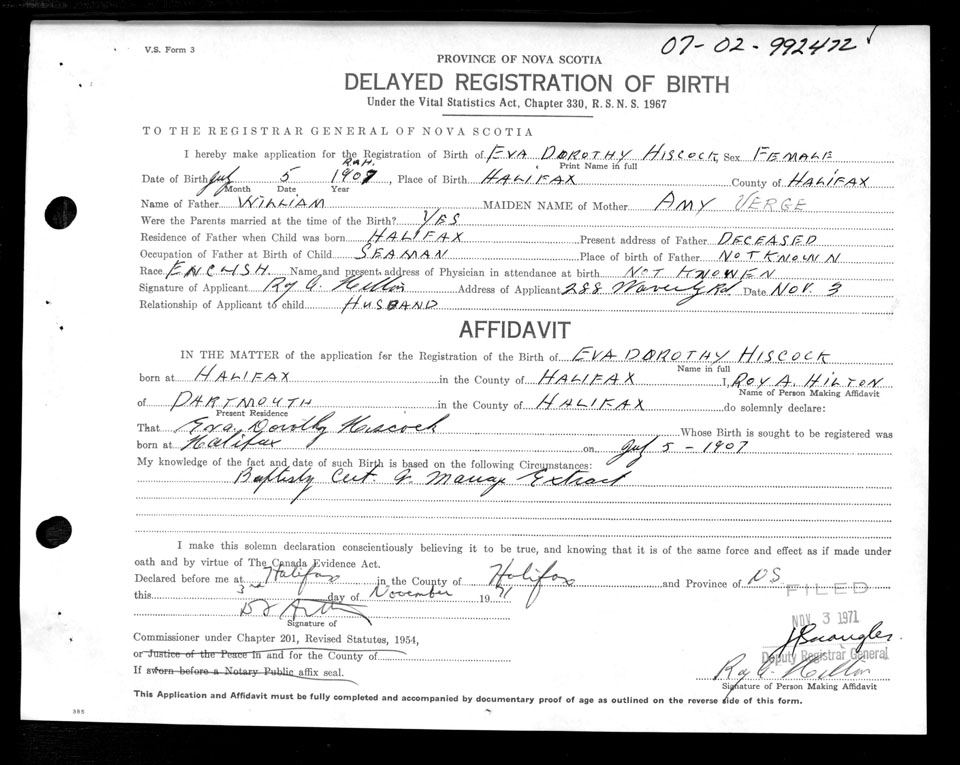 V.S. Form 3
07-02-992472
PROVINCE OF NOVA SCOTIA
DELAYED REGISTRATION OF BIRTH
Under the Vital Statistics Act, Chapter 330, R.S.N.S. 1967
TO THE REGISTRAR GENERAL OF NOVA SCOTIA
I hereby make application for the Registration of Birth of EVA DOROTHY HISCOCK, Sex FEMALE
Print Name in full
R.A.H.
Date of Birth July 5 1907, Place of Birth HALIFAX County of HALIFAX
Month Date Year
Name of Father WILLIAM MAIDEN NAME of Mother AMY VERGE
Were the Parents married at the time of the Birth? YES
Residence of Father when Child was born HALIFAX Present address of Father DECEASED
Occupation of Father at Birth of Child SEAMAN Place of birth of Father NOT KNOWN
Race ENGLISH Name and present address of Physician in attendance at birth NOT KNOWEN
Signature of Applicant Roy A. Hilton Address of Applicant 288 Waverly Rd Date NOV. 3
Relationship of Applicant to child HUSBAND
AFFIDAVIT
IN THE MATTER of the application for the Registration of the Birth of EVA DOROTHY HISCOCK
Name in full
born at HALIFAX in the County of HALIFAX I, ROY A. HILTON
Name of Person Making Affidavit
of DARTMOUTH in the County of HALIFAX do solemnly declare:
Present Residence
That Eva Dorothy Hiscock Whose Birth is sought to be registered was
born at Halifax on July 5-1907
My knowledge of the fact and date of such Birth is based on the following Circumstances:
Cert. Extract
I make this solemn declaration conscientiously believing it to be true, and knowing that it is of the same force and effect as if made under
oath and by virtue of The Canada Evidence Act.
Declared before me at Halifax in the County of Halifax and Province of NS
this 3rd day of November 1971
FILED
NOV 3 1971
Signature of
Commissioner under Chapter 201, Revised Statutes, 1954,
or Justice of the Peace in and for the County of
Deputy Registrar General
If sworn before a Notary Public affix seal.
Roy A. Hilton
Signature of Person Making Affidavit
This Application and Affidavit must be fully completed and accompanied by documentary proof of age as outlined on the reverse side of this form.
385